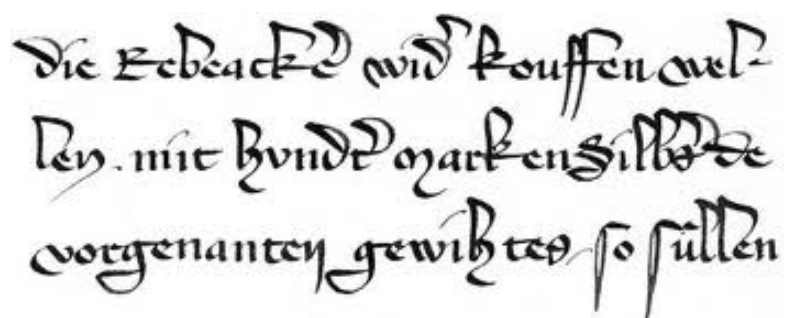 die Rebeacker wider kouffen wel-
len . mit hundert marken Silbers de
vorgenanten gewihtes so süllen